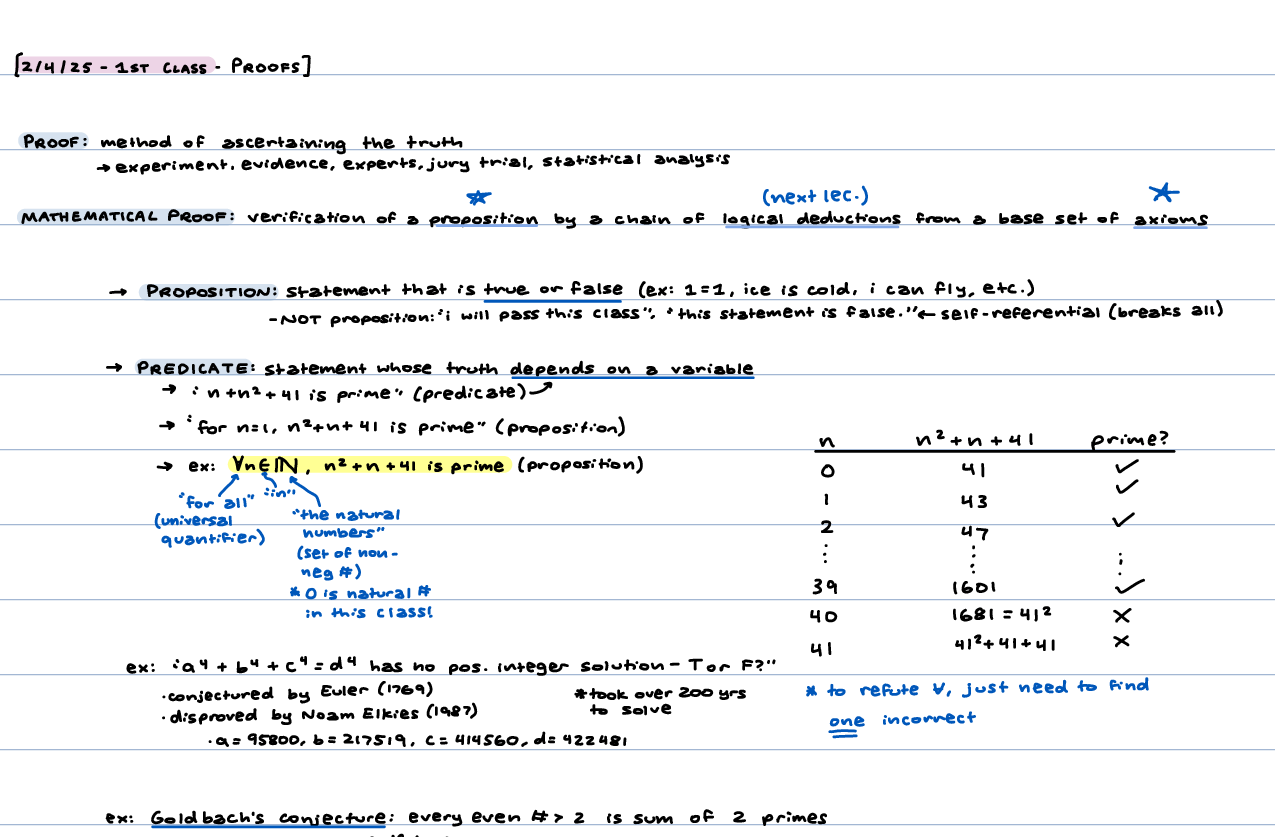 [2/4/25 - 1ST CLASS - PROOFS]
PROOF: method of ascertaining the truth
→ experiment, evidence, experts, jury trial, statistical analysis
(next lec.)
MATHEMATICAL PROOF: verification of a proposition by a chain of logical deductions from a base set of axioms
→ PROPOSITION: statement that is true or false (ex: 1=1, ice is cold, i can fly, etc.)
- NOT proposition: "i will pass this class", "this statement is false." ← self-referential (breaks all)
→ PREDICATE: statement whose truth depends on a variable
→ "n+n²+41 is prime" (predicate)
→ "for n=1, n²+n+41 is prime" (proposition)
→ ex: ∀n∈ℕ, n²+n+41 is prime (proposition)
"for all" "in"
(universal
quantifier)
"the natural
numbers"
(set of non-
neg #)
* 0 is natural #
in this class!
n n²+n+41 prime?
0 41 ✓
1 43 ✓
2 47 ✓
⋮ ⋮ ⋮
39 1601 ✓
40 1681 = 41² ✗
41 41²+41+41 ✗
* to refute ∀, just need to find
one incorrect
ex: "a⁴ + b⁴ + c⁴ = d⁴ has no pos. integer solution - T or F?"
· conjectured by Euler (1769)
· disproved by Noam Elkies (1987)
· a = 95800, b = 217519, c = 414560, d = 422481
* took over 200 yrs
to solve
ex: Goldbach's conjecture: every even # > 2 is sum of 2 primes